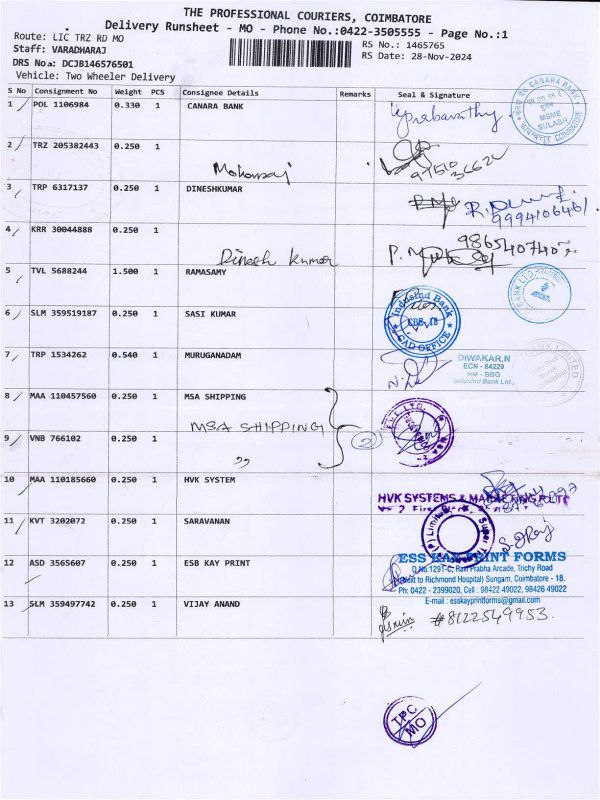 THE PROFESSIONAL COURIERS, COIMBATORE
Delivery Runsheet - MO - Phone No.:0422-3505555 - Page No.:1
Route: LIC TRZ RD MO
Staff: VARADHARAJ
DRS No: DCJB146576501
Vehicle: Two Wheeler Delivery
RS No.: 1465765
RS Date: 28-Nov-2024
S No Consignment No Weight PCS Consignee Details Remarks Seal & Signature
1 POL 1106984 0.330 1 CANARA BANK
CANARA BANK
MSME
SULABH
COIMBATORE
2 TRZ 205382443 0.250 1
Mohanraj
3 TRP 6317137 0.250 1 DINESHKUMAR
9994106461
4 KRR 30044888 0.250 1
Dinesh Kumar
9865407407
5 TVL 5688244 1.500 1 RAMASAMY
6 SLM 359519187 0.250 1 SASI KUMAR
IndusInd Bank
CAD OFFICE
7 TRP 1534262 0.540 1 MURUGANADAM
DIWAKAR.N
ECN - 84229
RM - BBG
IndusInd Bank Ltd.,
8 MAA 110457560 0.250 1 MSA SHIPPING
MSA SHIPPING
2
9 VNB 766102 0.250 1
"
10 MAA 110185660 0.250 1 HVK SYSTEM
HVK SYSTEMS & MARKETING
11 KVT 3202072 0.250 1 SARAVANAN
12 ASD 3565607 0.250 1 ESB KAY PRINT
ESS KAY PRINT FORMS
D.No.1291-C, Ram Prabha Arcade, Trichy Road
(Next to Richmond Hospital) Sungam, Coimbatore - 18.
Ph: 0422 - 2399020, Cell : 98422 49022, 98426 49022
E-mail : esskayprintforms@gmail.com
13 SLM 359497742 0.250 1 VIJAY ANAND
#8122549953.
TPC
MO